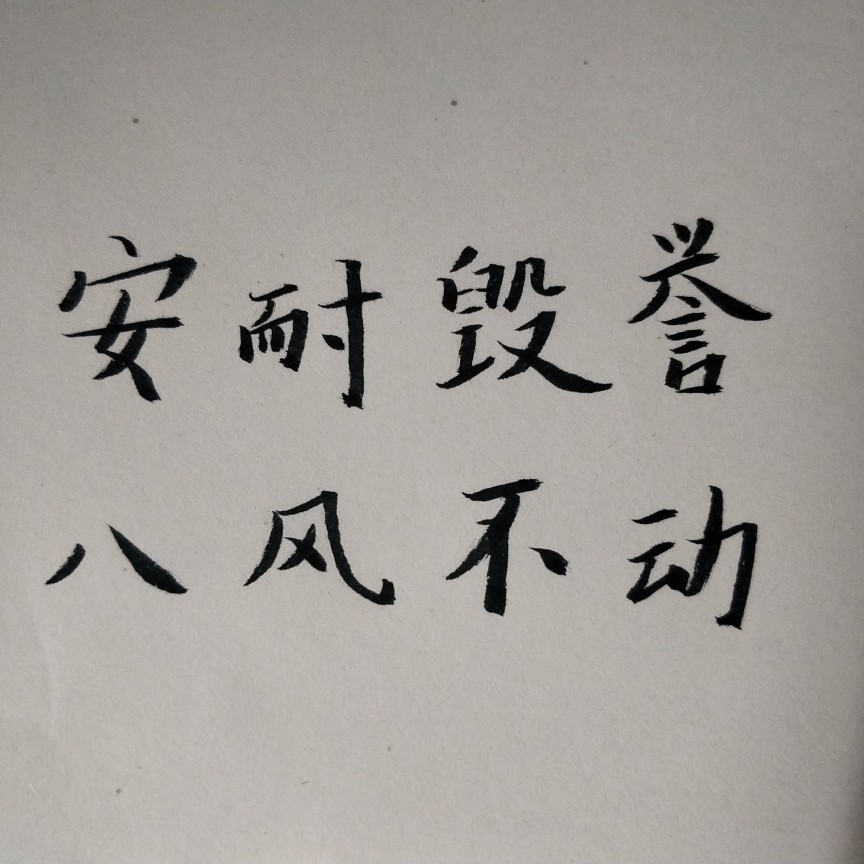 安耐毁誉
八风不动